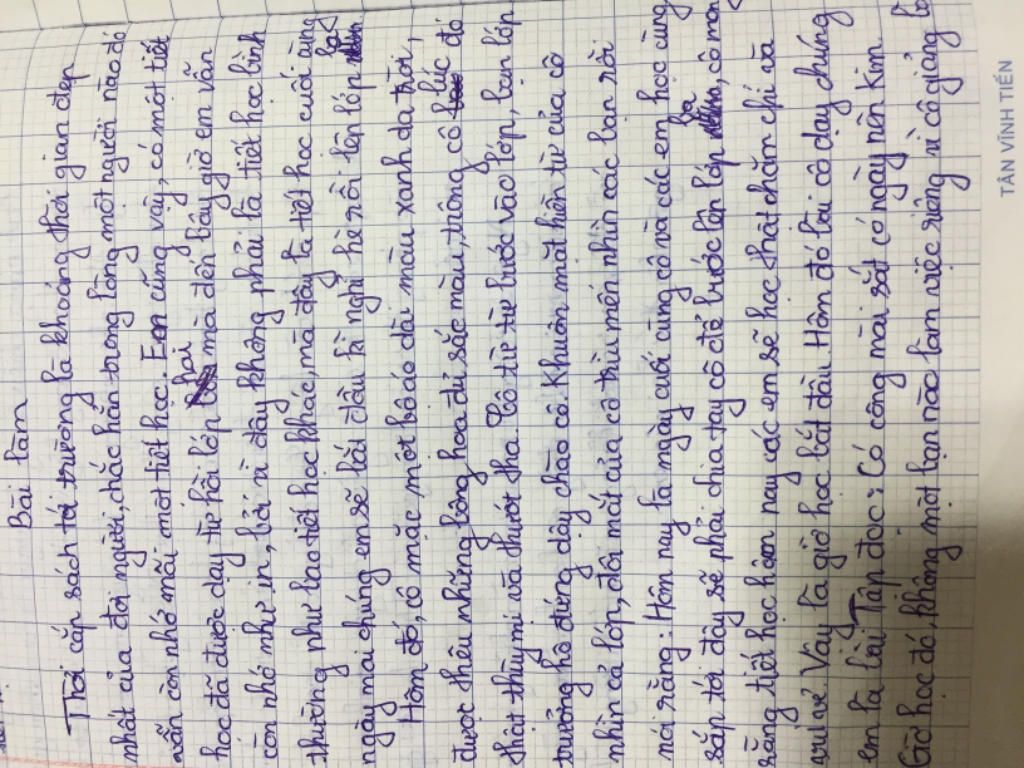 Bài làm
Thời cắp sách tới trường là khoảng thời gian đẹp
nhất của đời người, chắc hẳn trong lòng một người nào đó
vẫn còn nhớ mãi một tiết học. Em cũng vậy, có một tiết
học đã được dạy từ hồi lớp hai mà đến bây giờ em vẫn
còn nhớ như in, bởi vì đây không phải là tiết học bình
thường như bao tiết học khác, mà đây là tiết học cuối cùng
ngày mai chúng em sẽ bắt đầu kì nghỉ hè rồi lên lớp ba
Hôm đó, cô mặc một bộ áo dài màu xanh da trời,
được thêu những bông hoa đủ sắc màu, trông cô lúc đó
thật thùy mị và thướt tha. Cô từ từ bước vào lớp, bạn lớp
trưởng hô đứng dậy chào cô. Khuôn mặt hiền từ của cô
nhìn cả lớp, đôi mắt của cô trìu mến nhìn các bạn rồi
nói rằng: Hôm nay là ngày cuối cùng cô và các em học cùng
sắp tới đây sẽ phải chia tay cô để bước lên lớp ba, cô mong
rằng tiết học hôm nay các em sẽ học thật chăm chỉ và
vui vẻ. Vậy là giờ học bắt đầu. Hôm đó lại cô dạy chúng
em là bài Tập đọc: Có công mài sắt có ngày nên kim
Giờ học đó, không một bạn nào làm việc riêng vì cô giảng
TÂN VĨNH TIẾN